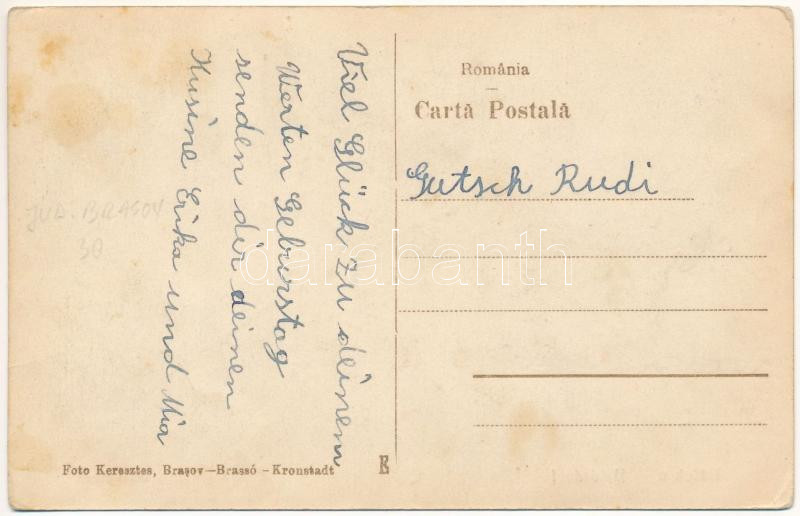 Viel Glück zu deinem
Werten Geburstag
senden dir deinen
Kusine Erika und Mia
România
Cartă Postală
Gutsch Rudi
JUD. BRASOV
30
darabanth
Foto Keresztes, Brașov—Brassó - Kronstadt
E